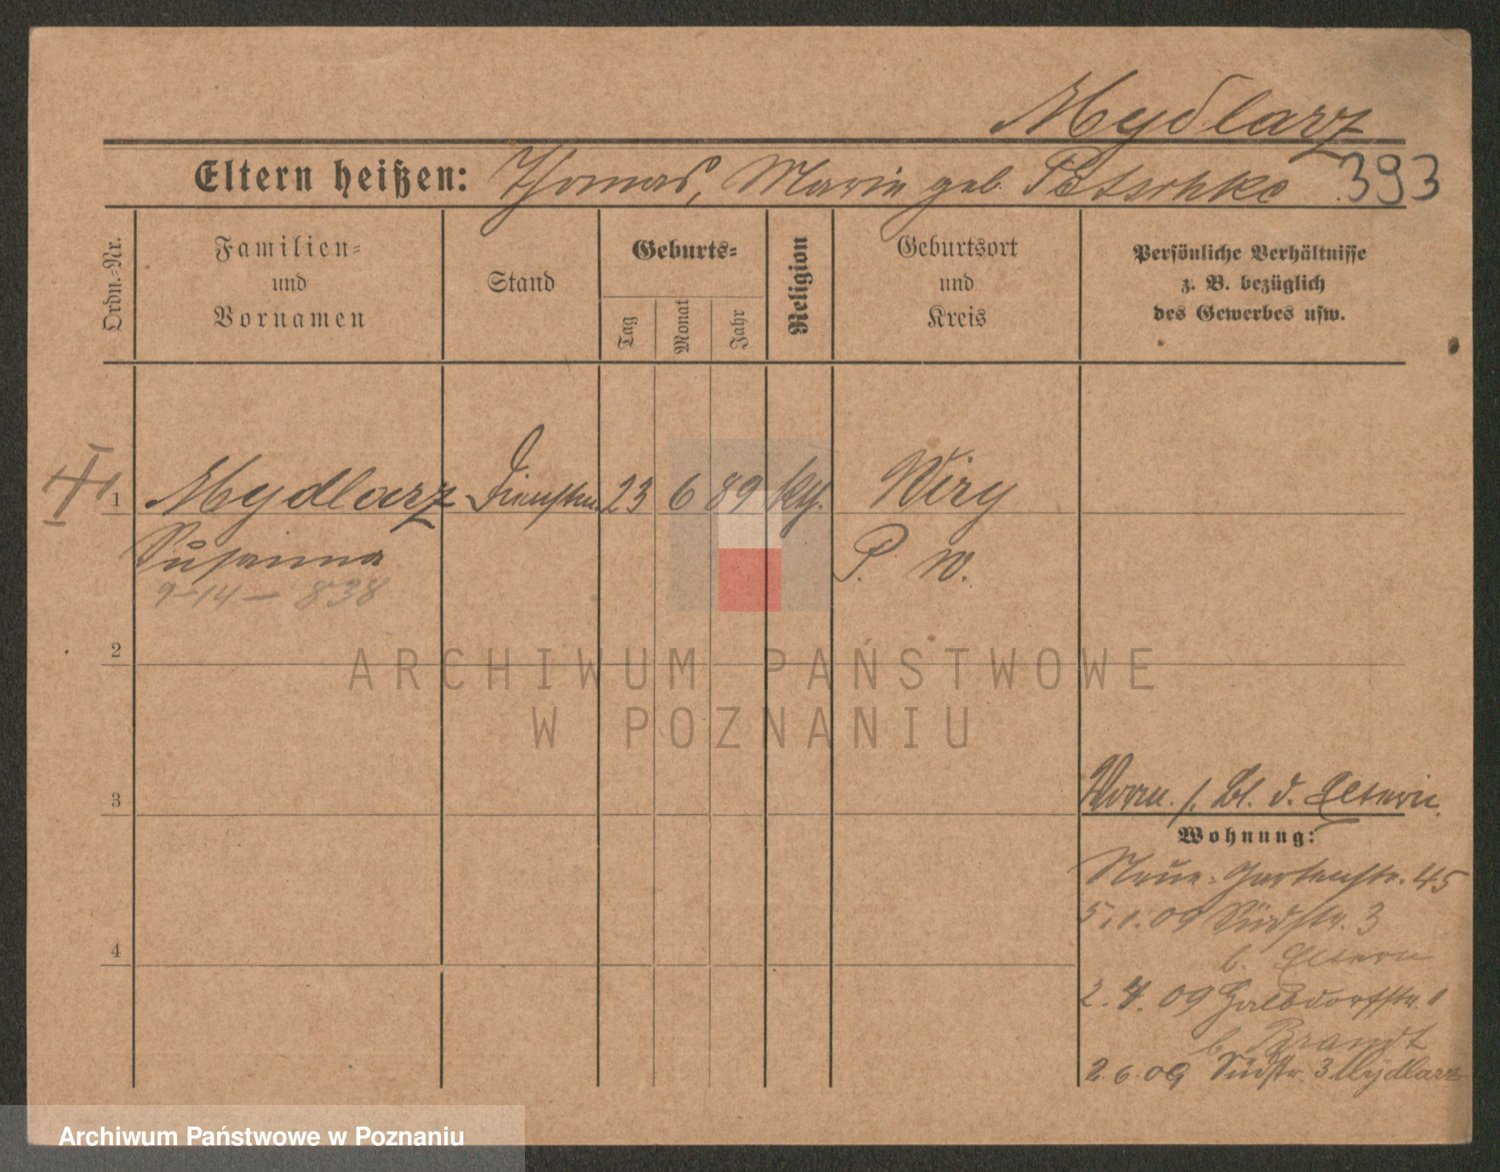 Mydlarz
Eltern heißen: Thomas, Marie geb. Petschke 393
Ordn.-Nr.
Familien-
und
Vornamen
Stand
Geburts-
Tag
Monat
Jahr
Religion
Geburtsort
und
Kreis
Persönliche Verhältnisse
z. B. bezüglich
des Gewerbes usw.
1 Mydlarz 23 6 89 kth. Wiry
Susanna P. W.
9-14 - 838
2
ARCHIWUM PAŃSTWOWE
W POZNANIU
3
Vorm. s. Bl. d. Eltern.
Wohnung:
Neue-Gartenstr. 45
5.1.09 Südstr. 3
b. Eltern
4
2.4.09 Halbdorfstr. 1
b. Brandt
2.6.09 Südstr. 3 Mydlarz
Archiwum Państwowe w Poznaniu